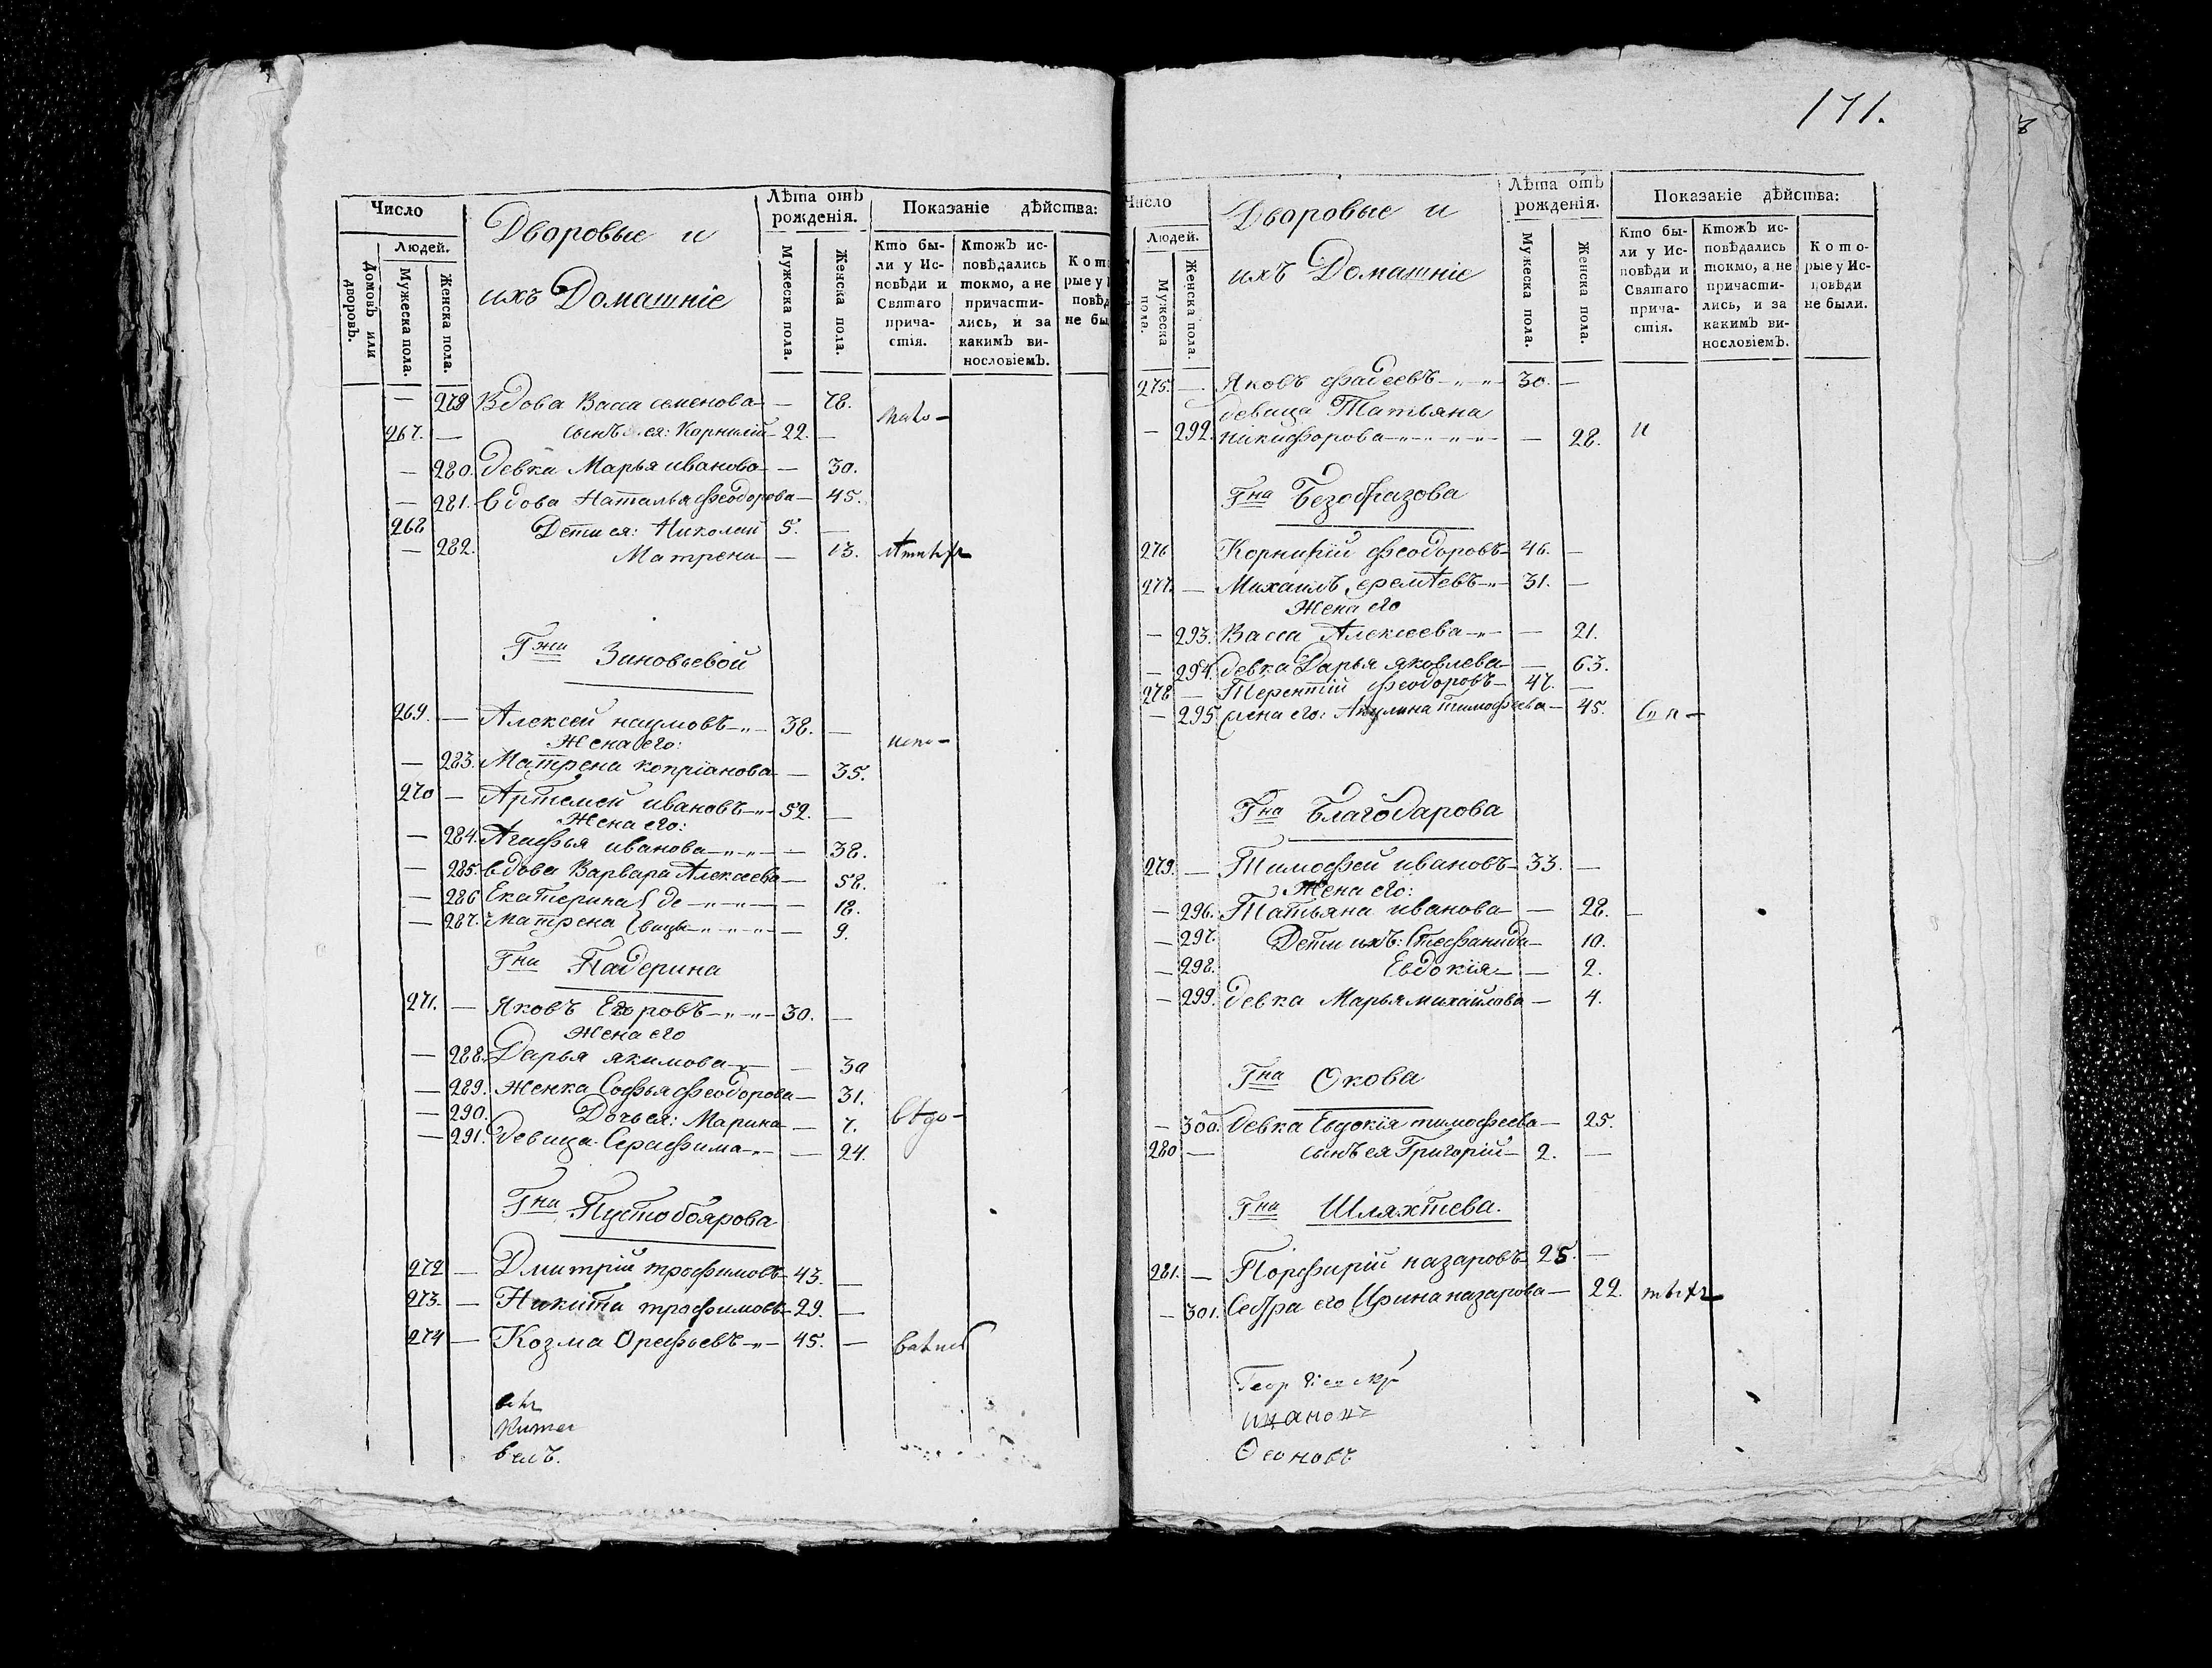 Число
Людей.
Домовъ или дворовъ.
Мужеска пола.
Женска пола.
Дворовые и
ихъ Домашніе
Лѣта отъ рожденія.
Мужеска пола.
Женска пола.
Показаніе дѣйства:
Кто были у Исповѣди и Святаго причастія.
Ктожъ исповѣдались токмо, а не причастились, и за какимъ винословіемъ.
279 Вдова Васса семенова — 78.
267. — сынъ ея: Корнилій 22. —
— 280. девка Марья иванова — 30.
— 281. вдова Наталья Феодорова — 45.
268 Дети ея: Николай 5. —
— 282. Матрена — 13.
Гжи Зиновьевой
269. — Алексей наумовъ 38. —
Жена его:
— 283. Матрена копріанова — 35.
270 — Артемей ивановъ 52. —
Жена его:
— 284. Агафья иванова — 38.
— 285. вдова Варвара Алексеева — 58.
— 286 Екатерина де — 18.
— 287. Матрена вицы — 9.
Гна Падерина
271. — Яковъ Егоровъ 30. —
Жена его
— 288. Дарья якимова — 30
— 289. Женка Софья Феодорова — 31.
— 290. Дочь ея: Марина — 7.
— 291. Девица Серафима — 24.
Гна Пустобоярова
272 — Дмитрій трофимовъ 43. —
273. — Никита трофимовъ 29. —
274 — Козма Орефьевъ 45. —
171.
Число
Людей.
Мужеска пола.
Женска пола.
Дворовые и
ихъ Домашніе
Лѣта отъ рожденія.
Мужеска пола.
Женска пола.
Показаніе дѣйства:
Кто были у Исповѣди и Святаго причастія.
Ктожъ исповѣдались токмо, а не причастились, и за какимъ винословіемъ.
Которые у Исповѣди не были.
275. — Яковъ Фадеевъ 30. —
девица Татьяна
— 292. никифорова — 28. и
Гна Безобразова
276 Корнилій Феодоровъ 46. —
277. — Михаилъ еремѣевъ 31. —
Жена его
— 293. Васса Алексеева — 21.
— 294. девка Дарья яковлева — 63.
278 — Терентій Феодоровъ 47. —
— 295. жена его: Акулина тимофеева — 45.
Гна Благодарова
279. — Тимофей ивановъ 33. —
Жена его:
— 296. Татьяна иванова — 28.
— 297. Дети ихъ: Стефанида — 10.
— 298. Евдокія — 2.
— 299. девка Марья михайлова — 4.
Гна Окова
— 300. девка Евдокія тимофеева — 25.
280 — сынъ ея Григорій 2. —
Гна Шляхтева.
281. — Порфирій назаровъ 25. —
— 301. Сестра его Ирина назарова — 22.